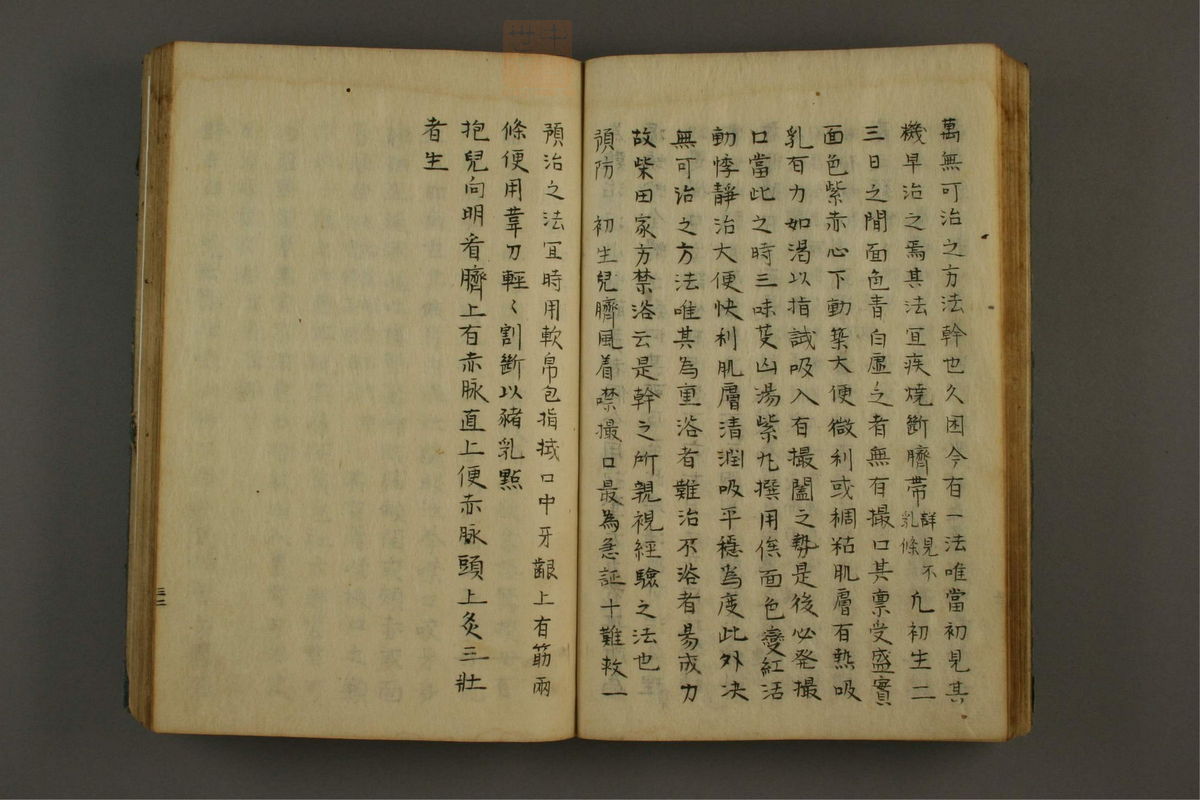 萬無可治之方法幹也久困今有一法唯當初見其
機早治之焉其法宜疾燒斷臍帶詳見不乳條凡初生二
三日之間面色青白虛乏者無有撮口其稟受盛實
面色紫赤心下動築大便微利或稠粘肌膚有熱吸
乳有力如渴以指試吸入有撮闔之勢是後必発撮
口當此之時三味茰山湯紫九撰用俟面色變紅活
動悸靜治大便快利肌膚清潤吸平穩為度此外决
無可治之方法唯其為重浴者難治不浴者易成力
故柴田家方禁浴云是幹之所親視經驗之法也
預防 初生兒臍風着噤撮口最為急証十難救一
預治之法宜時用軟帛包指拭口中牙齦上有筋兩
條便用葦刀輕々割斷以豬乳點
抱兒向明看臍上有赤脉直上便赤脉頭上灸三壯
者生
三